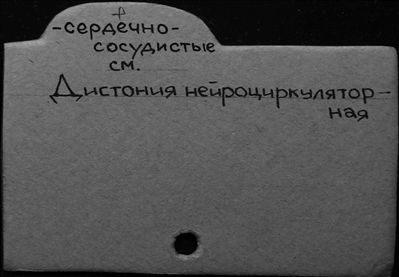 -сердечно-
сосудистые
см.
Дистония нейроциркулятор-
ная